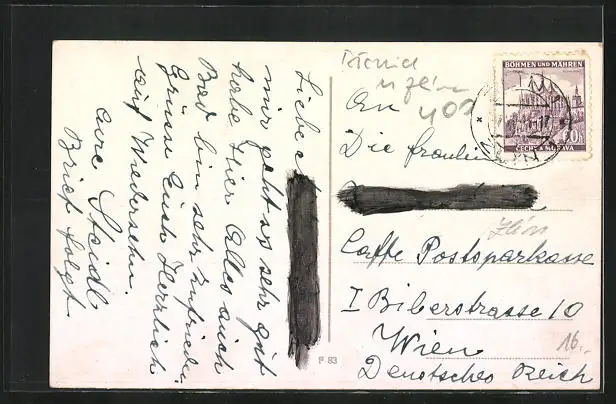 Liebe
mir geht es sehr gut
habe Hier Alles auch
Bad bin sehr zufrieden.
Grüsse Euch Herzlich
auf Wiedersehn.
eure Steidl
Brief folgt
F 83
An
Die fraulein
Zlín
Caffe Postsparkasse
I Biberstrasse 10
Wien
16.
Deutsches Reich
BÖHMEN UND MÄHREN
60h
ČECHY A MORAVA